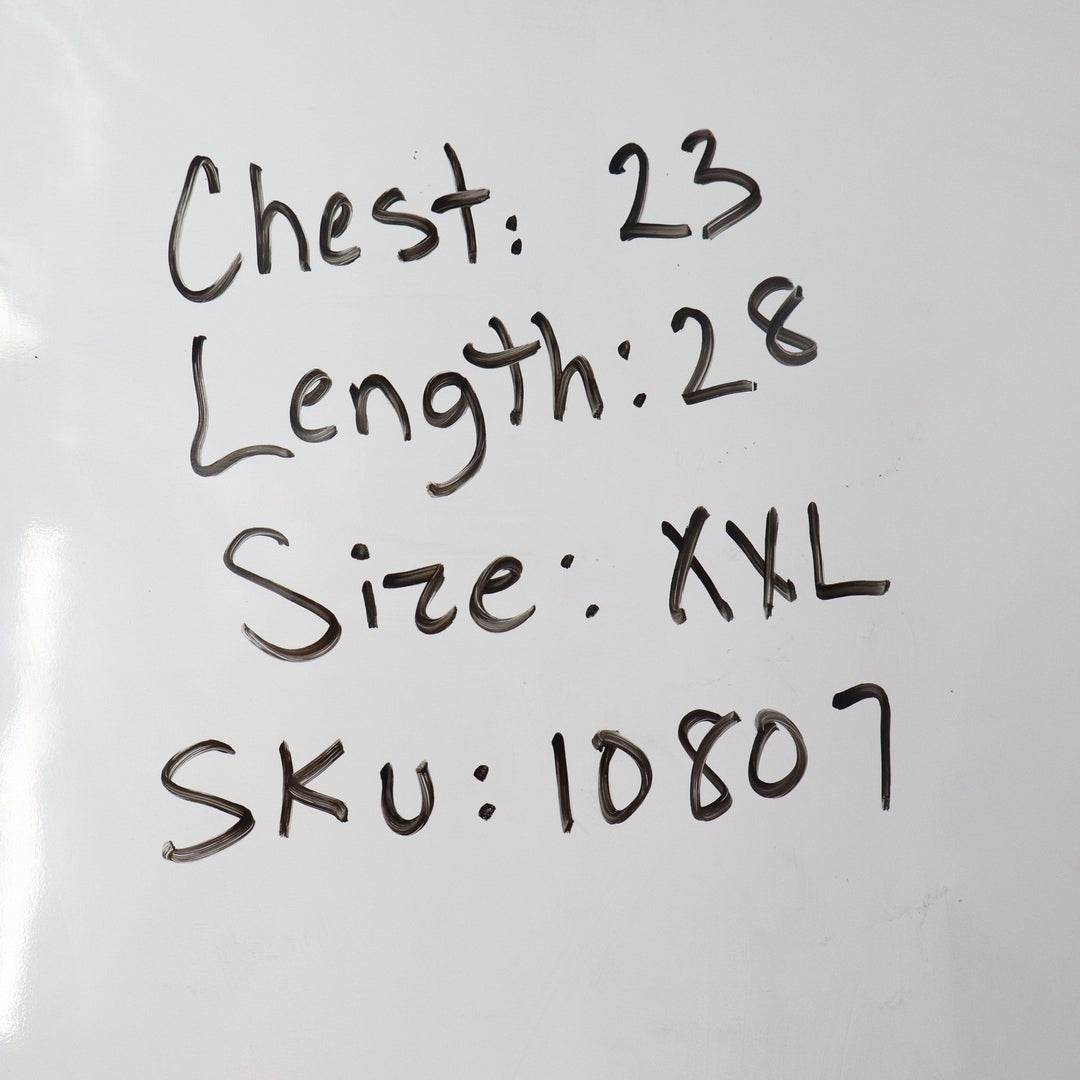 Chest: 23
Length: 28
Size: XXL
SKU: 10807